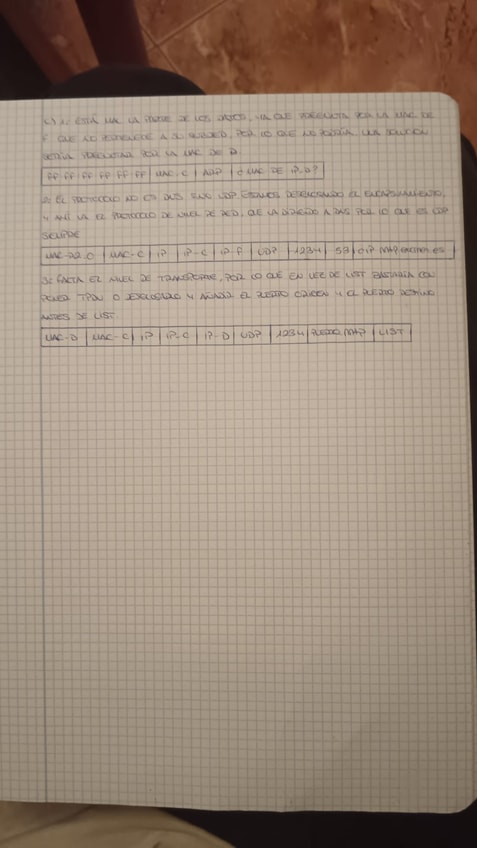 C) 1: ESTÁ MAL LA PARTE DE LOS DATOS, YA QUE PREGUNTA POR LA MAC DE
F QUE NO PERTENECE A SU SUBRED, POR LO QUE NO PODRÍA. UNA SOLUCIÓN
SERÍA PREGUNTAR POR LA MAC DE D
FF FF FF FF FF FF | MAC-C | ARP | ¿MAC DE IP-D?
2: EL PROTOCOLO NO ES DNS SINO UDP ESTAMOS DESGLOSANDO EL ENCAPSULAMIENTO,
Y AHÍ VA EL PROTOCOLO DE NIVEL DE RED, QUE VA DIRIGIDO A DNS POR LO QUE ES UDP
SIEMPRE
MAC-R2.C | MAC-C | IP | IP-C | IP-F | UDP | 1234 | 53 | ¿IP IMAP.examen.es
3: FALTA EL NIVEL DE TRANSPORTE, POR LO QUE EN VEZ DE LIST BASTARÍA CON
PONER TPDU O DESGLOSARLO Y AÑADIR EL PUERTO ORIGEN Y EL PUERTO DESTINO
ANTES DE LIST
MAC-D | MAC-C | IP | IP-C | IP-D | UDP | 1234 | PUERTO IMAP | LIST